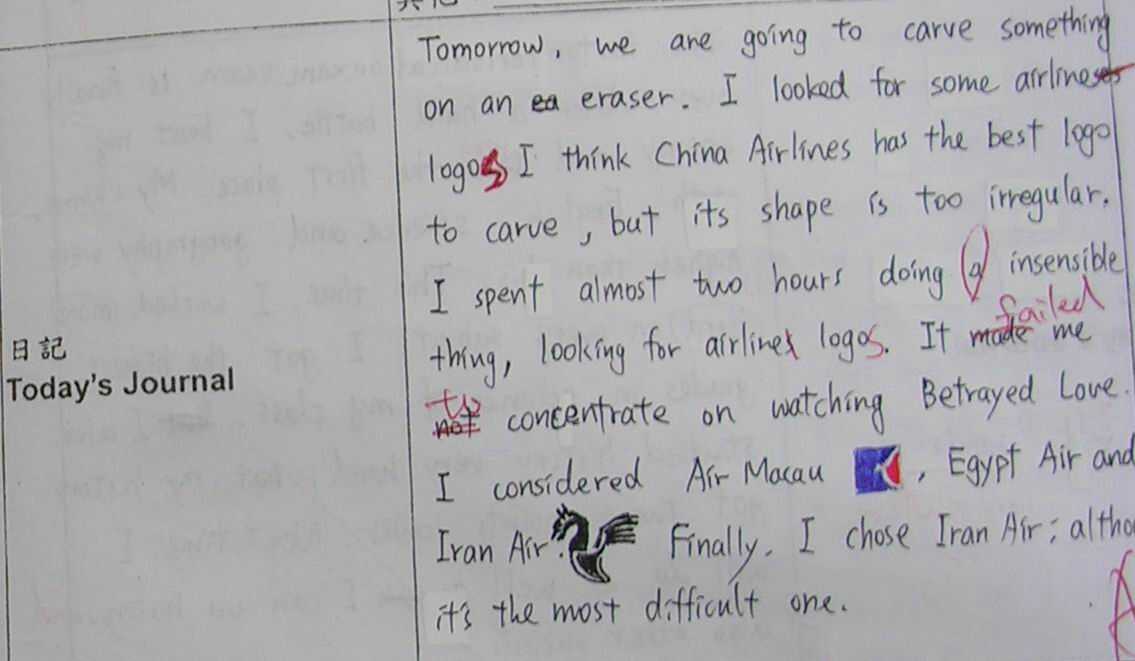 Tomorrow, we are going to carve something
on an ea eraser. I looked for some airlines
logos I think China Airlines has the best logo
to carve, but its shape is too irregular.
I spent almost two hours doing a insensible
failed
thing, looking for airlines logos. It made me
to
not concentrate on watching Betrayed Love.
I considered Air Macau , Egypt Air and
Iran Air. Finally, I chose Iran Air; altho
it's the most difficult one.
日記
Today's Journal